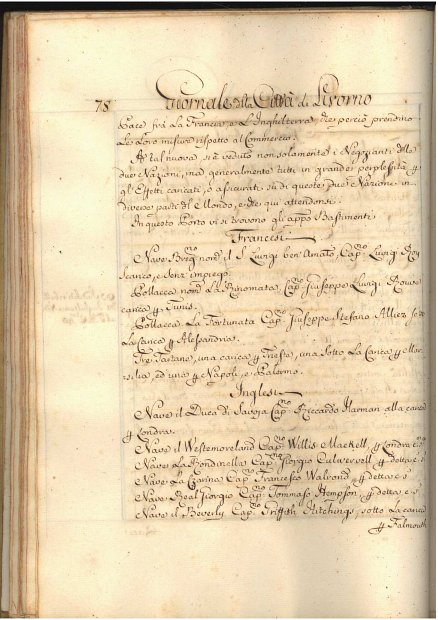 78
Giornale della Città di Livorno
Pace frà La Francia, e L'Inghilterra, e che perciò prendino
Le Loro misure rispetto al Commercio.
A tal nuova si è veduto non solamente i Negozianti delle
due Nazioni, mà generalmente tutti in grande perplessità p
gl'Effetti caricati, ò assicurati sù di queste due Nazione in
diverse parti del Mondo, e che qui attendonsi.
In questo Porto vi si trovono gl'appo Bastimenti
Francesi
Nave Brig.no nom.ta il S. Luigi ben'Amato, Cap.no Luigi
scarico, e senz'impiego.
Pollacca nom.ta La Rinomata, Cap.no Giuseppe Luigi Roux
carica p Tunis.
Pollacca La Fortunata Cap.no Giuseppe Stefano Alliez sotto
La carica p Alessandria.
Tre Tartane, una carica p Trieste, una sotto La Carica p Mar-
silia, ed una p Napoli, e Palermo.
Inglesi
Nave il Duca di Savoja Cap.no Riccardo Harman alla carica
p Londra.
Nave il Westmoreland Cap.no Willis Machell, p Londra
Nave La Rondinella Cap.no Giorgio Culverwell p detta
Nave La Carina Cap.no Francesco Walrond, p detta
Nave Real Giorgio Cap.no Tommaso Hempson, p detta
Nave il Beverly Cap.no Griffith Hitchings, sotto La carica
p Falmouth